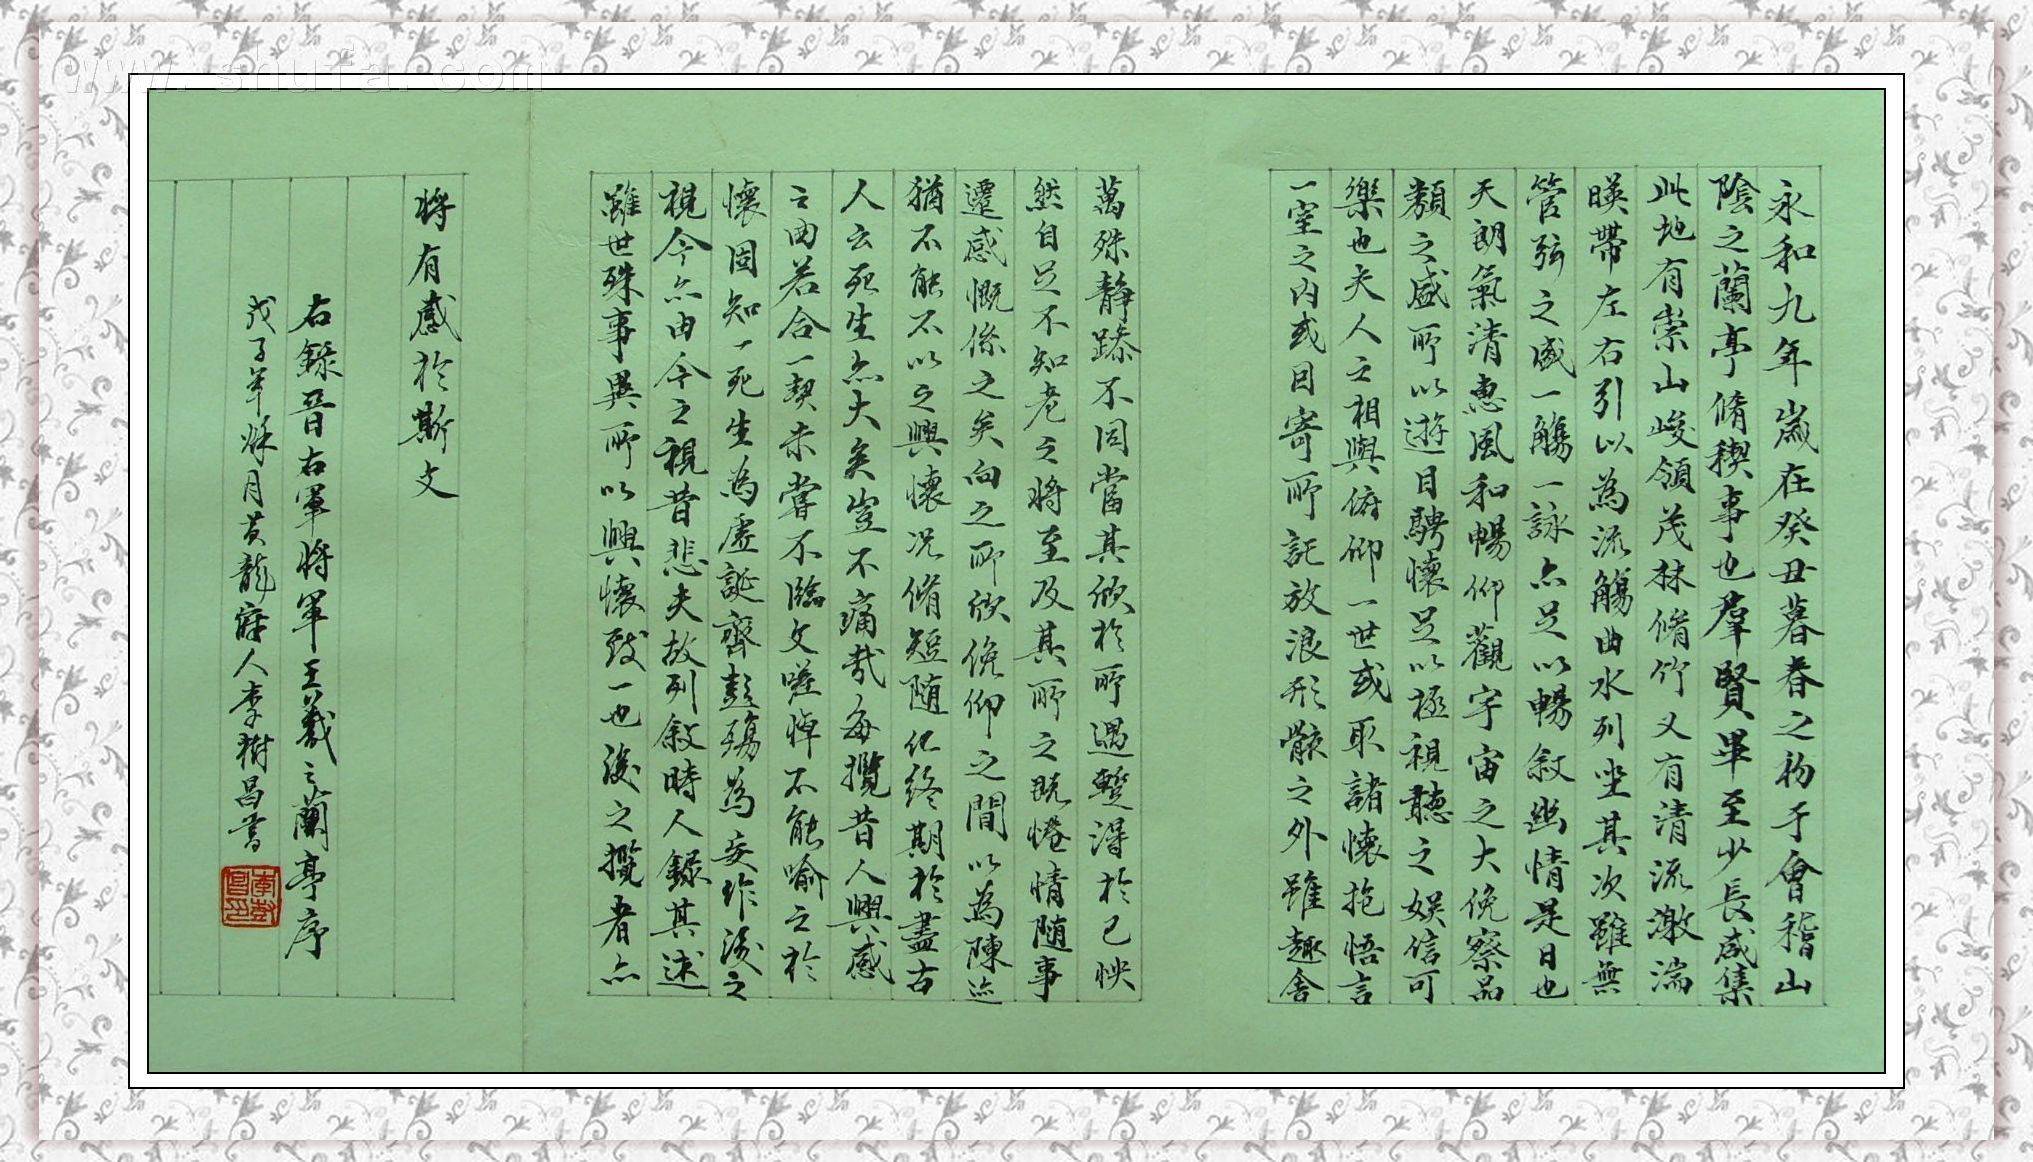 www.shufa.com
永和九年歲在癸丑暮春之初于會稽山
陰之蘭亭脩稧事也群賢畢至少長咸集
此地有崇山峻領茂林脩竹又有清流激湍
暎帶左右引以為流觴曲水列坐其次雖無
管弦之盛一觴一詠亦足以暢敘幽情是日也
天朗氣清惠風和暢仰觀宇宙之大俛察品
類之盛所以遊目騁懷足以極視聽之娛信可
樂也夫人之相與俯仰一世或取諸懷抱悟言
一室之內或因寄所託放浪形骸之外雖趣舍
萬殊靜躁不同當其欣於所遇暫得於己怏
然自足不知老之將至及其所之既惓情隨事
遷感慨係之矣向之所欣俛仰之間以為陳迹
猶不能不以之興懷況脩短隨化終期於盡古
人云死生亦大矣豈不痛哉每攬昔人興感
之由若合一契未嘗不臨文嗟悼不能喻之於
懷固知一死生為虛誕齊彭殤為妄作後之
視今亦由今之視昔悲夫故列敘時人錄其述
雖世殊事異所以興懷致一也後之攬者亦
將有感於斯文
右錄晉右軍將軍王羲之蘭亭序
戊子年秋月黃龍府人李樹昌書
李樹昌印